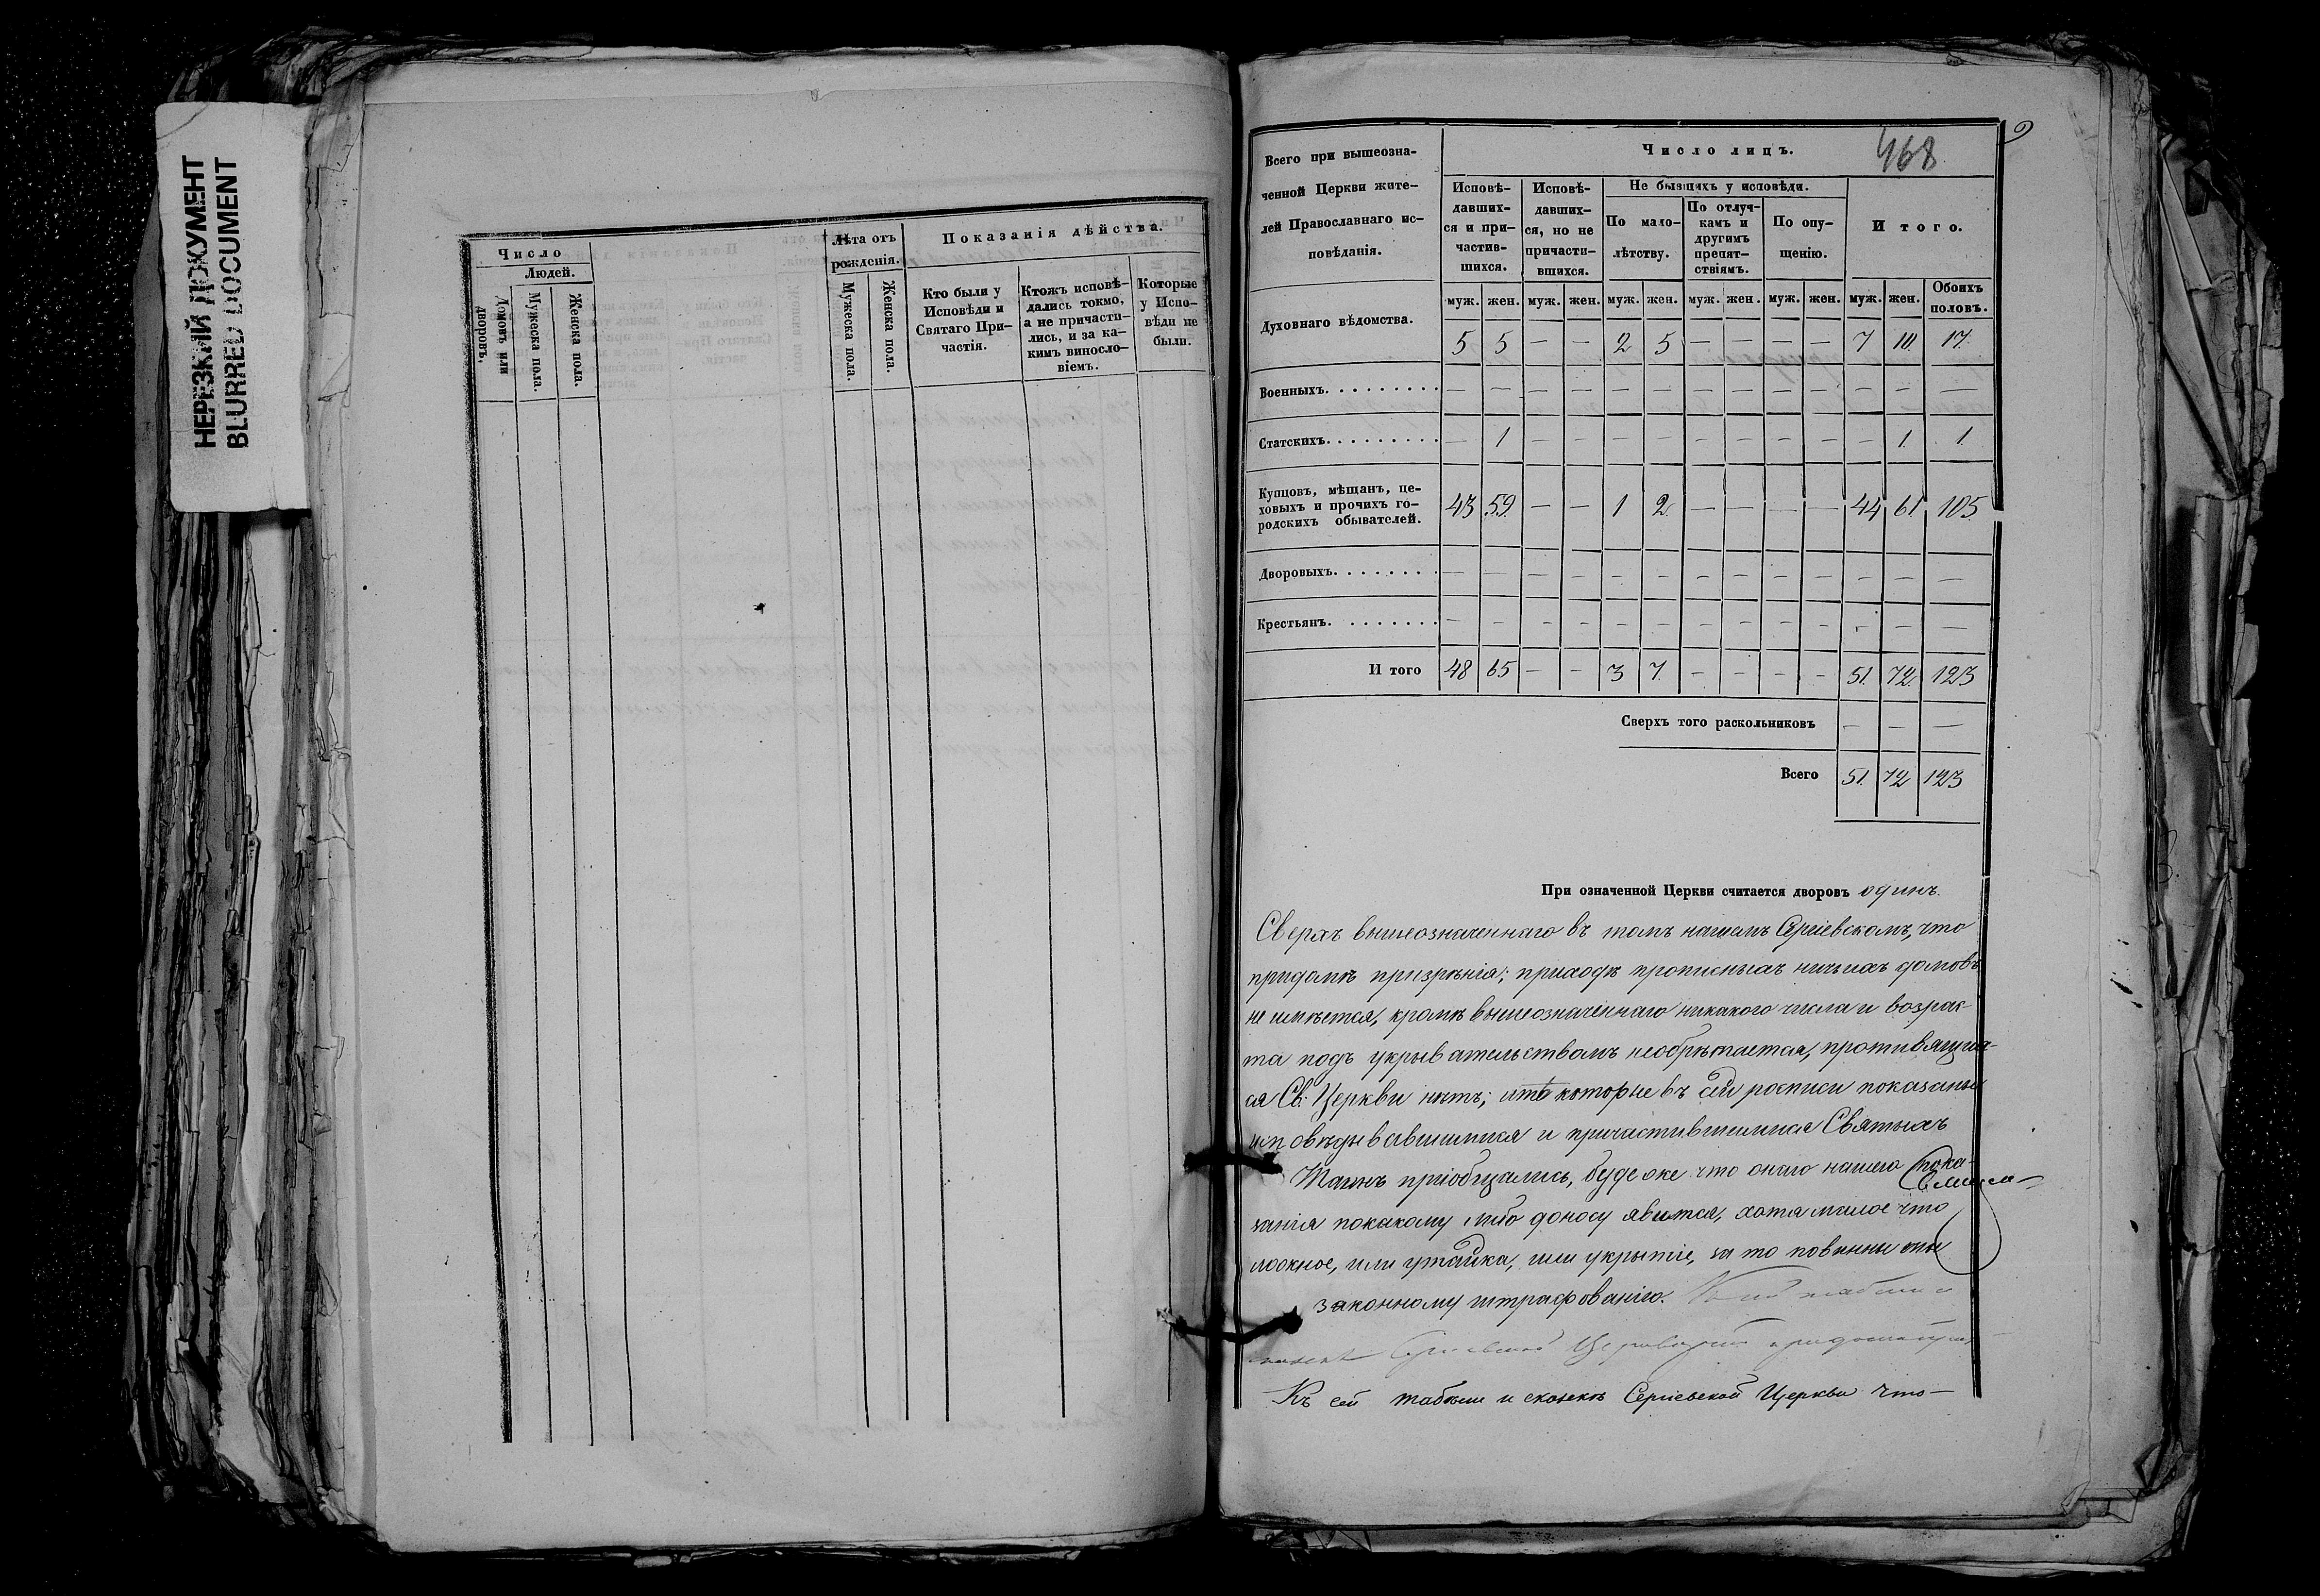 НЕРЕЗКИЙ ДОКУМЕНТ
BLURRED DOCUMENT
Число
Людей.
Домовъ или дворовъ.
Мужеска пола.
Женска пола.
Лѣта отъ рожденія.
Мужеска пола.
Женска пола.
Показанія дѣйства.
Кто были у Исповѣди и Святаго Причастія.
Ктожъ исповѣдались токмо, а не причастились, и за какимъ винословіемъ.
Которые у Исповѣди не были.
9
468
Всего при вышеозна-
ченной Церкви жите-
лей Православнаго ис-
повѣданія.
Число лицъ.
Исповѣ-
давших-
ся и при-
частив-
шихся.
Исповѣ-
давших-
ся, но не
причасти-
вшихся.
Не бывшихъ у исповѣди.
По мало-
лѣтству.
По отлуч-
камъ и
другимъ
препят-
ствіямъ.
По опу-
щенію.
Итого.
муж. жен. муж. жен. муж. жен. муж. жен. муж. жен. муж. жен. Обоихъ половъ.
Духовнаго вѣдомства. 5 5 — — 2 5 — — — — 7 10. 17.
Военныхъ. — — — — — — — — — — — — —
Статскихъ. — 1 — — — — — — — — — 1. 1.
Купцовъ, мѣщанъ, це-
ховыхъ и прочихъ го-
родскихъ обывателей. 43 59. — — 1 2. — — — — 44 61 105.
Дворовыхъ. — — — — — — — — — — — — —
Крестьянъ. — — — — — — — — — — — — —
И того 48 65 — — 3 7. — — — — 51. 72. 123
Сверхъ того раскольниковъ — — —
Всего 51. 72 123
При означенной Церкви считается дворовъ одинъ.
Сверхъ вышеозначеннаго въ томъ нашемъ Сергіевскомъ, что
придомѣ призрѣнія; приходѣ прописныхъ ничьихъ домовъ
не имѣется, кромѣ вышеозначеннаго никакого числа и возрас-
та подъ укрывательствомъ необрѣтается, противящих-
ся Св. Церкви нѣтъ; что которые въ сей росписи показаны
исповѣдывавшимися и причастившимися Святыхъ
Таинъ пріобщались, буде же что онаго нашего пока-
занія покакому либо доносу явится, хотя малое что
ложное, или утайка, или укрытіе, за то повинны они
законному штрафованію.
Сергіевской
Къ сей табели и сказкѣ Сергіевской Церкви что—